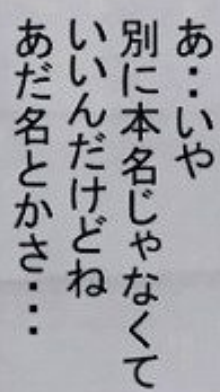 あ‥いや
別に本名じゃなくて
いいんだけどね
あだ名とかさ…